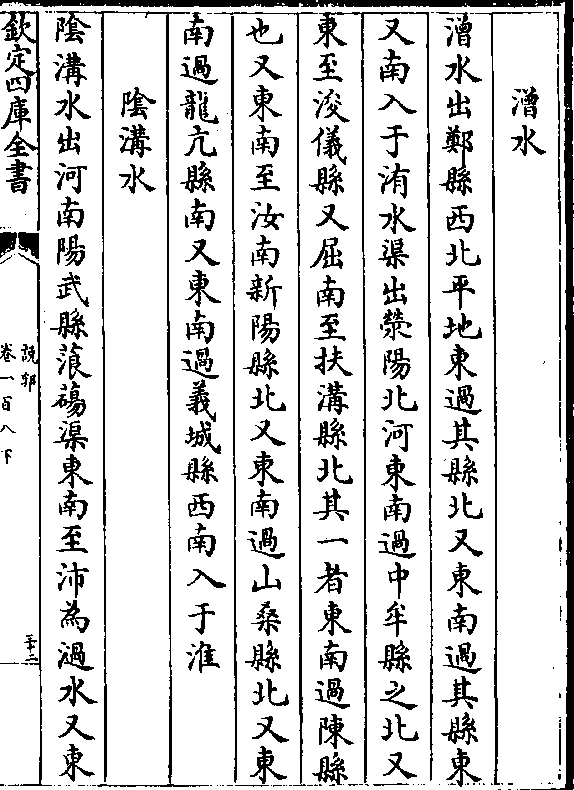 潧水
潧水出鄭縣西北平地東過其縣北又東南過其縣東
又南入于洧水渠出滎陽北河東南過中牟縣之北又
東至浚儀縣又屈南至扶溝縣北其一者東南過陳縣
也又東南至汝南新陽縣北又東南過山桑縣北又東
南過龍亢縣南又東南過義城縣西南入于淮
陰溝水
陰溝水出河南陽武縣蒗蕩渠東南至沛為濄水又東
欽定四庫全書
說郛
卷一百八下
三十二